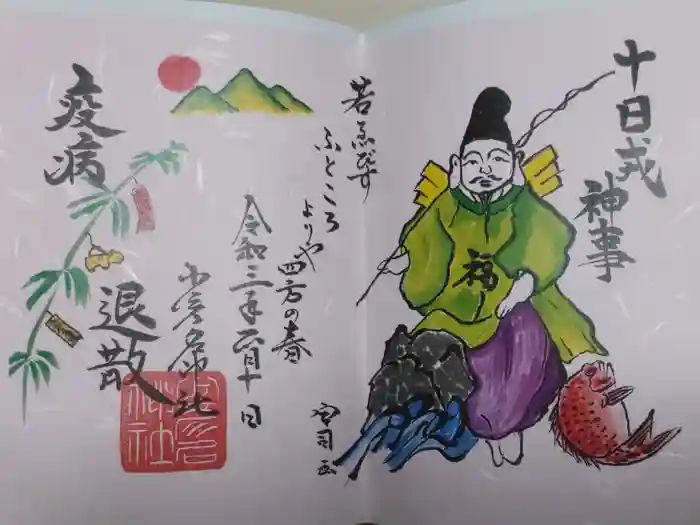 十日戎
神事
福
若ゑびす
ふところ
よりや
四方の春
宮司画
令和三年 月十日
疫病
退散
神社